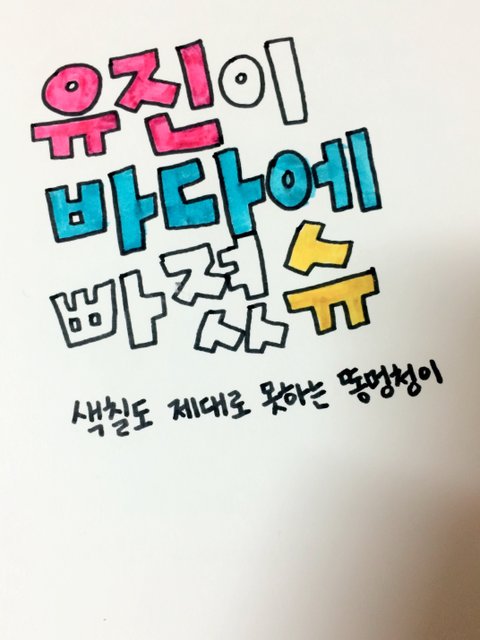 유진이
바다에
빠졌슈
색칠도 제대로 못하는 똥멍청이